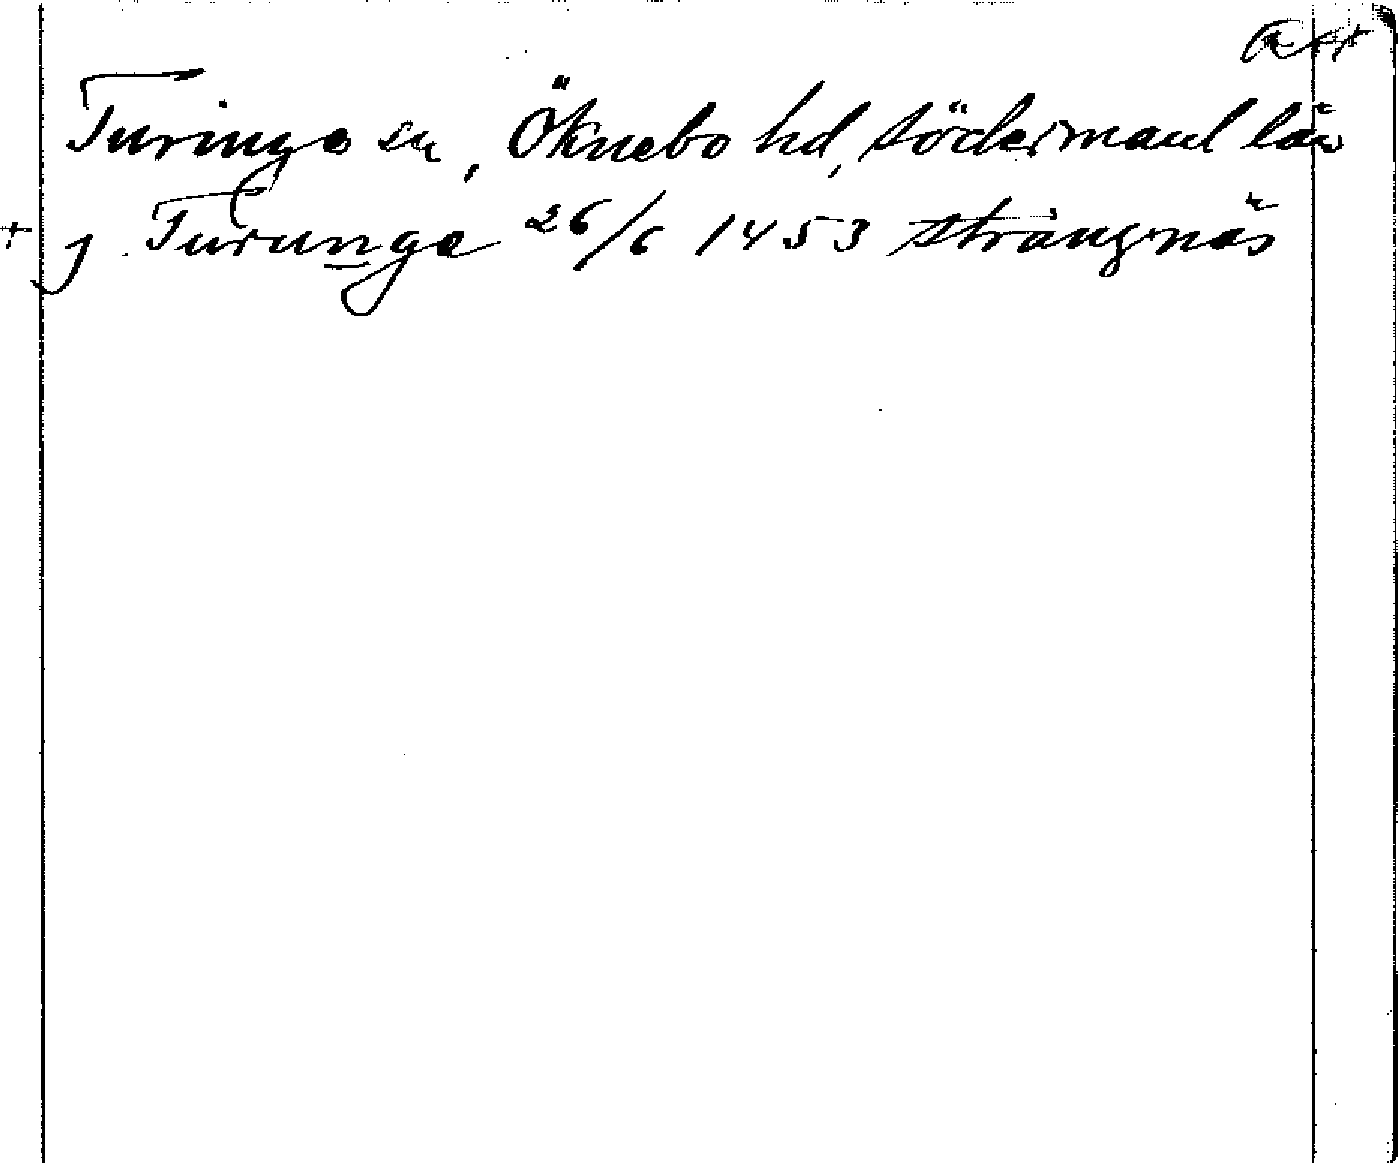 Turinge sn, Öknebo hd, Södermanl län
+ j Turunge 26/6 1453 Strängnäs